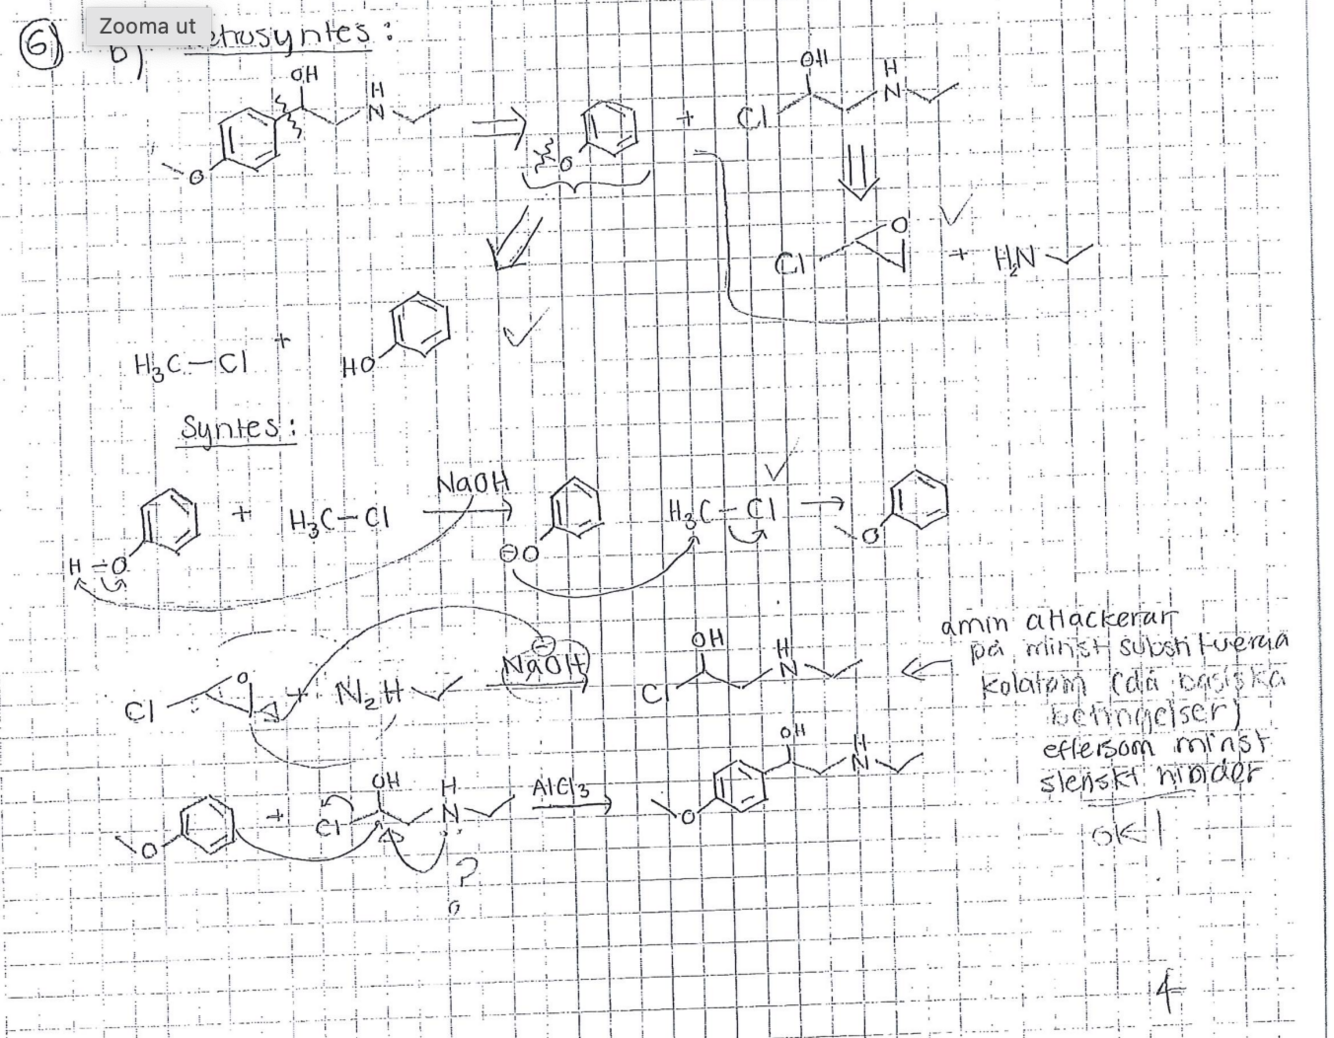 6)
Zooma ut
b) etrosyntes:
OH
H
N
O
O
+
Cl
OH
H
N
Cl
O
+ H2N
H3C-Cl
+
HO
Syntes:
H-O
+ H3C-Cl
NaOH
⊖O
H3C-Cl
O
Cl
O
+ N2H
⊖
NaOH
Cl
OH
H
N
amin attackerar
på minst substituerad
kolatom (då basiska
betingelser)
eftersom minst
steriskt hinder
OK!
O
+
Cl
OH
H
N
AlCl3
O
OH
H
N
?
4